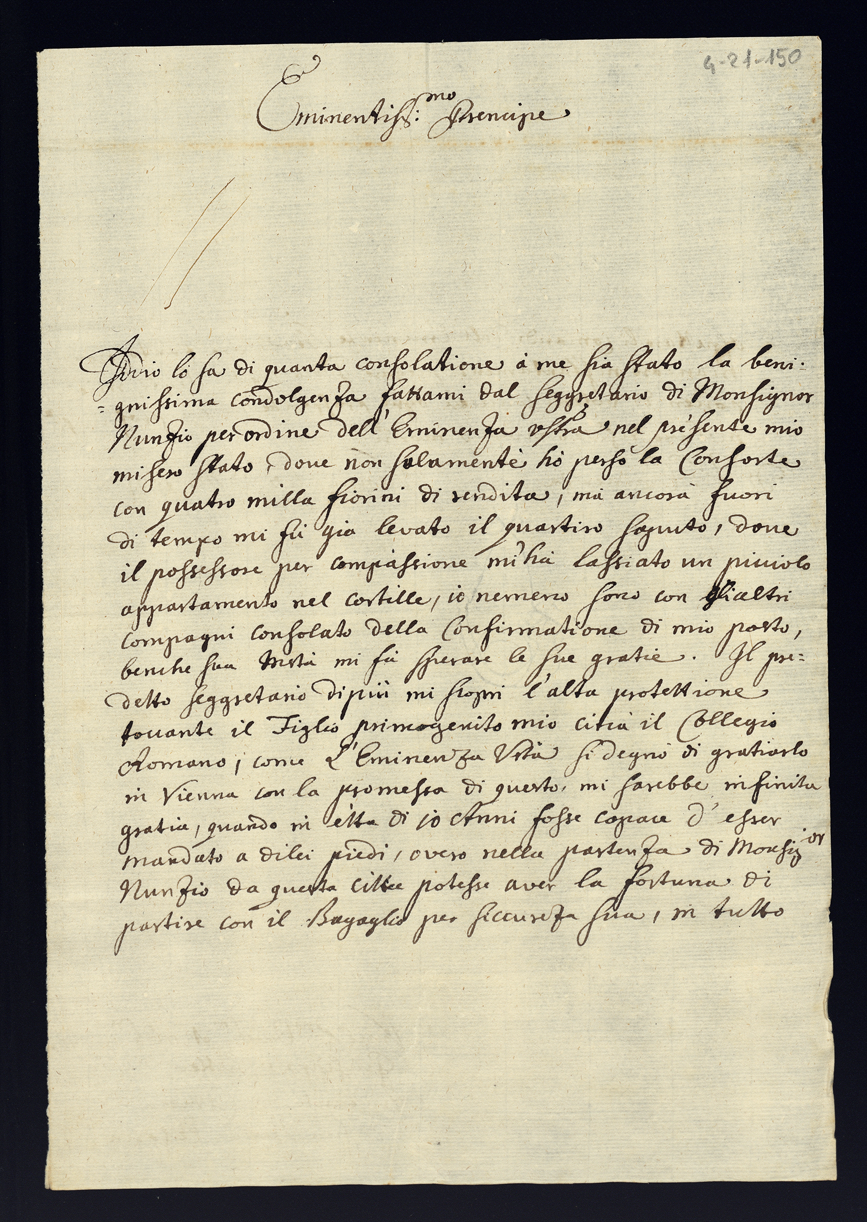 4-21-150
Eminentiss:mo Prencipe
Iddio lo sa di quanta consolatione à me sia stato la beni-
=gnissima condolgenza fattami dal seggretario di Monsignor
Nunzio per ordine dell' Eminenza vstra nel presente mio
misero stato, dove non solamente hò perso la Consorte
con quatro milla fiorini di rendita, mà ancora fuori
di tempo mi fù già levato il quartiro saputo, dove
il possessore per compassione m'hà lassiato un picciolo
appartamento nel cortille, io nemeno sono con glialtri
compagni consolato della Confirmatione di mio posto,
benche sua Mstà mi fà sperare le sue gratie. Il pre=
detto seggretario dipiù mi scoprì l'alta protettione
tocante il Figlio primogenito mio circa il Collegio
Romano, come L'Eminenza Vstà si degnò di gratiarlo
in Vienna con la promessa di questo, mi sarebbe infinita
gratia, quando in età di 10 Anni fosse capace d'esser
mandato a dilei piedi, overo nella partenza di Monsig:or
Nunzio da questa città potesse aver la fortuna di
partire con il Bagaglio per siccurezza sua, in tutto